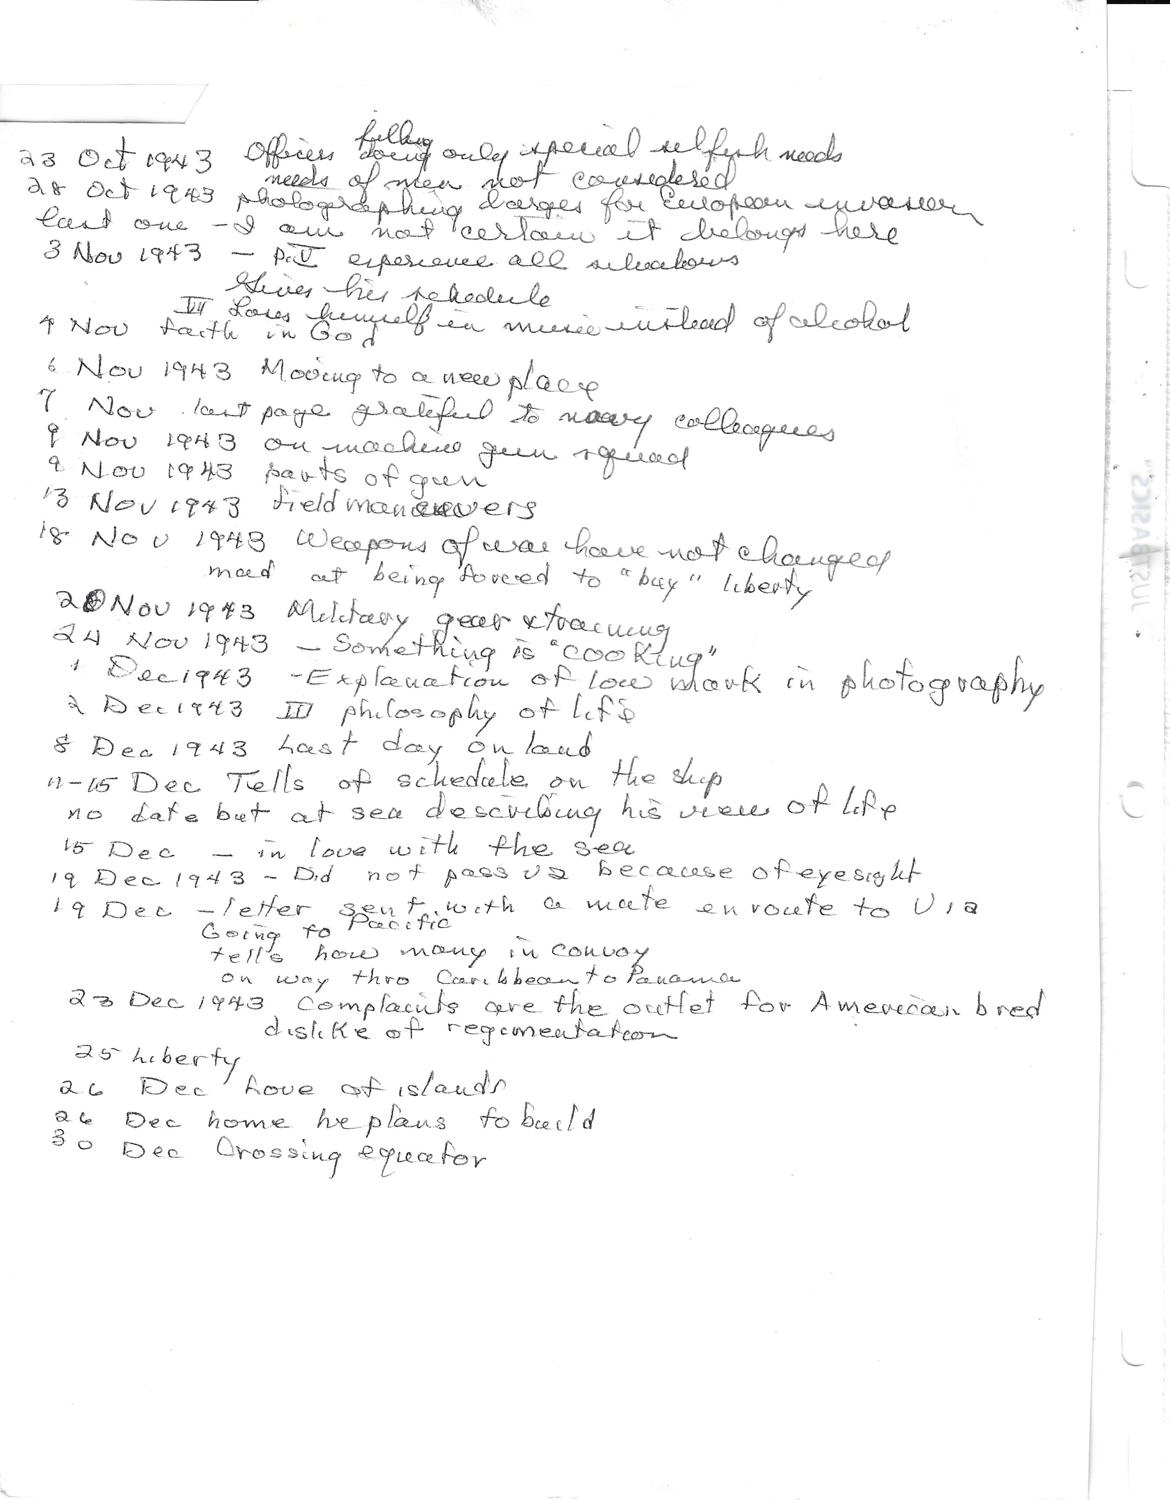 23 Oct 1943 Officers filling doing only special selfish needs
needs of men not considered
28 Oct 1943 photographing barges for European invasion
last one - I am not certain it belongs here
3 Nov 1943 - P. V experience all situations
Gives his schedule
VII Loses himself in music instead of alcohol
4 Nov Faith in God
6 Nov 1943 Moving to a new place
7 Nov last page grateful to navy colleagues
9 Nov 1943 on machine gun squad
9 Nov 1943 parts of gun
13 Nov 1943 field maneuvers
18 Nov 1943 Weapons of war have not changed
mad at being forced to "buy" liberty
20 Nov 1943 Military gear & training
24 Nov 1943 - Something is "cooking"
1 Dec 1943 - Explanation of low mark in photography
2 Dec 1943 III philosophy of life
8 Dec 1943 Last day on land
11-15 Dec Tells of schedule on the ship
no date but at sea describing his view of life
15 Dec - in love with the sea
19 Dec 1943 - Did not pass V2 because of eyesight
19 Dec - letter sent with a mate enroute to U12
Going to Pacific
tells how many in convoy
on way thro Caribbean to Panama
23 Dec 1943 Complaints are the outlet for American bred
dislike of regimentation
25 Liberty
26 Dec Love of islands
26 Dec home he plans to build
30 Dec Crossing equator
JUSTBASICS